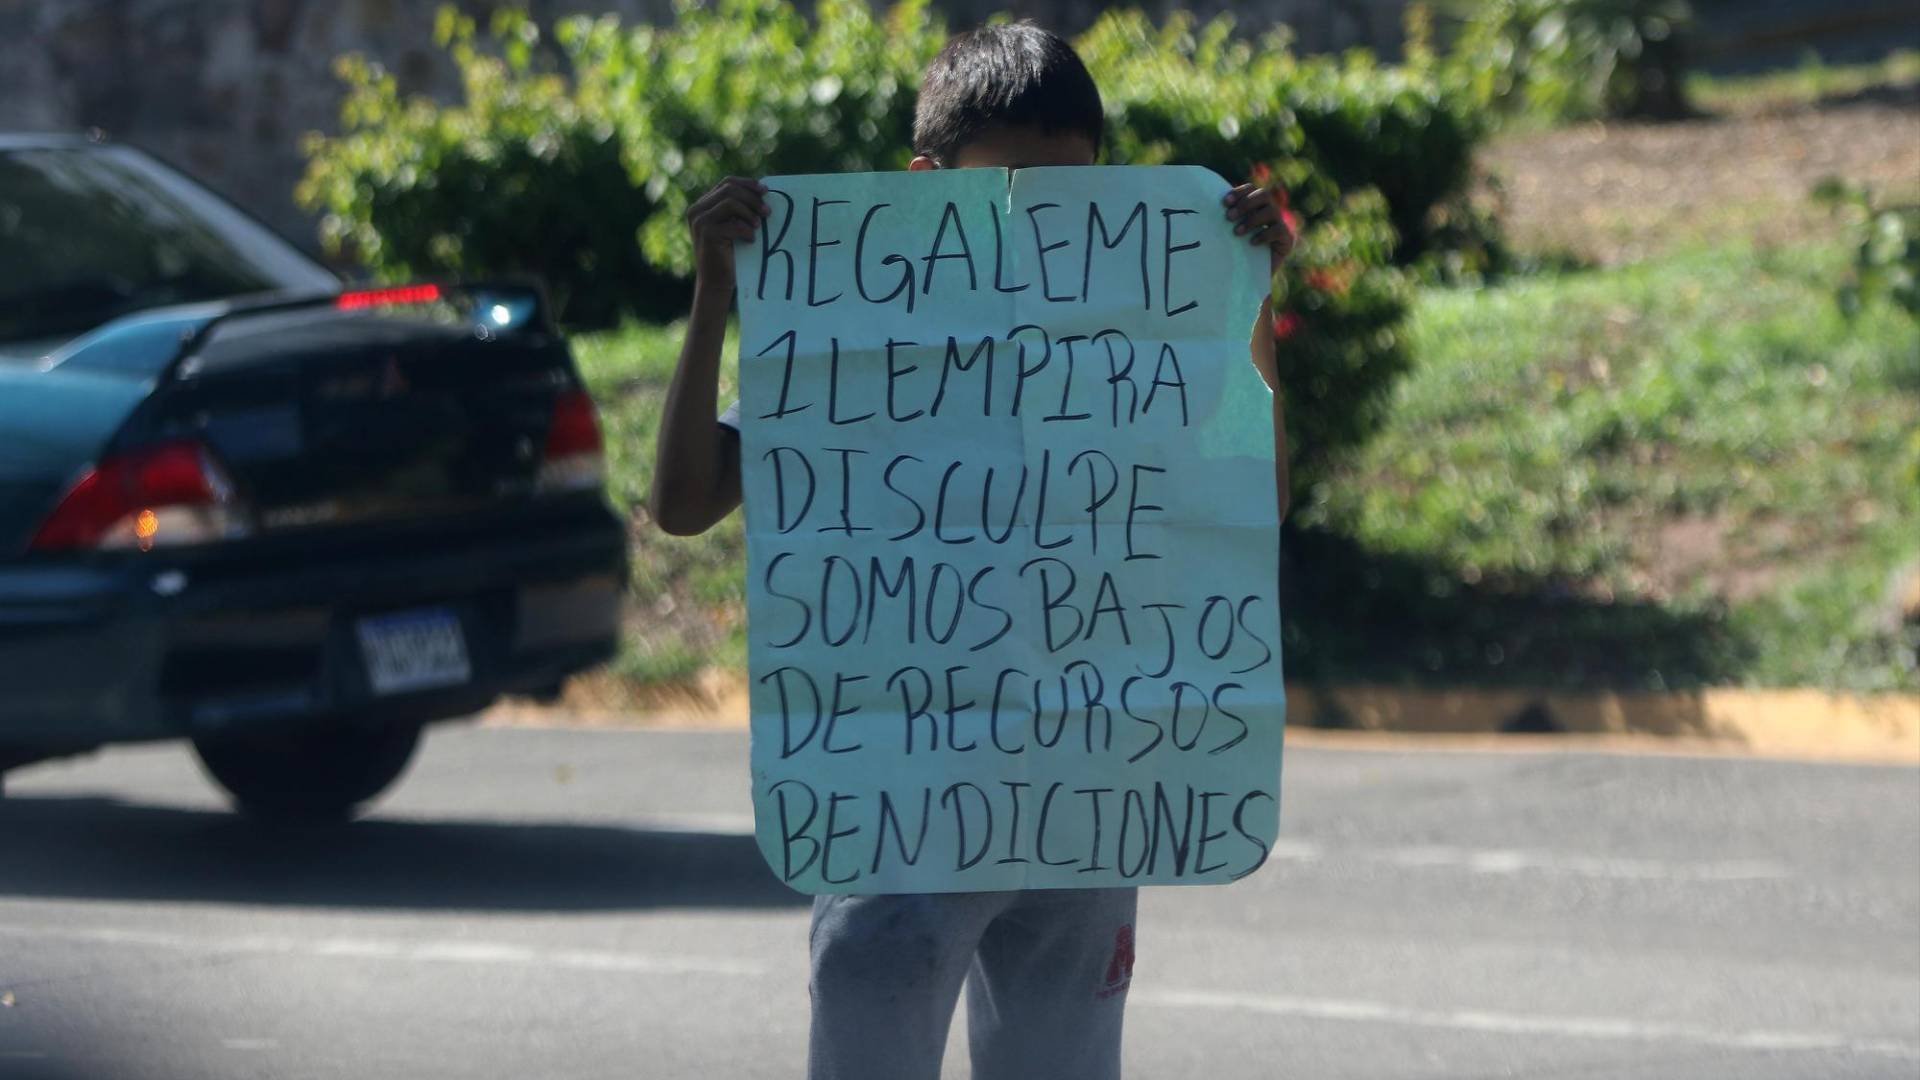 REGALEME
1 LEMPIRA
DISCULPE
SOMOS BAJOS
DE RECURSOS
BENDICIONES